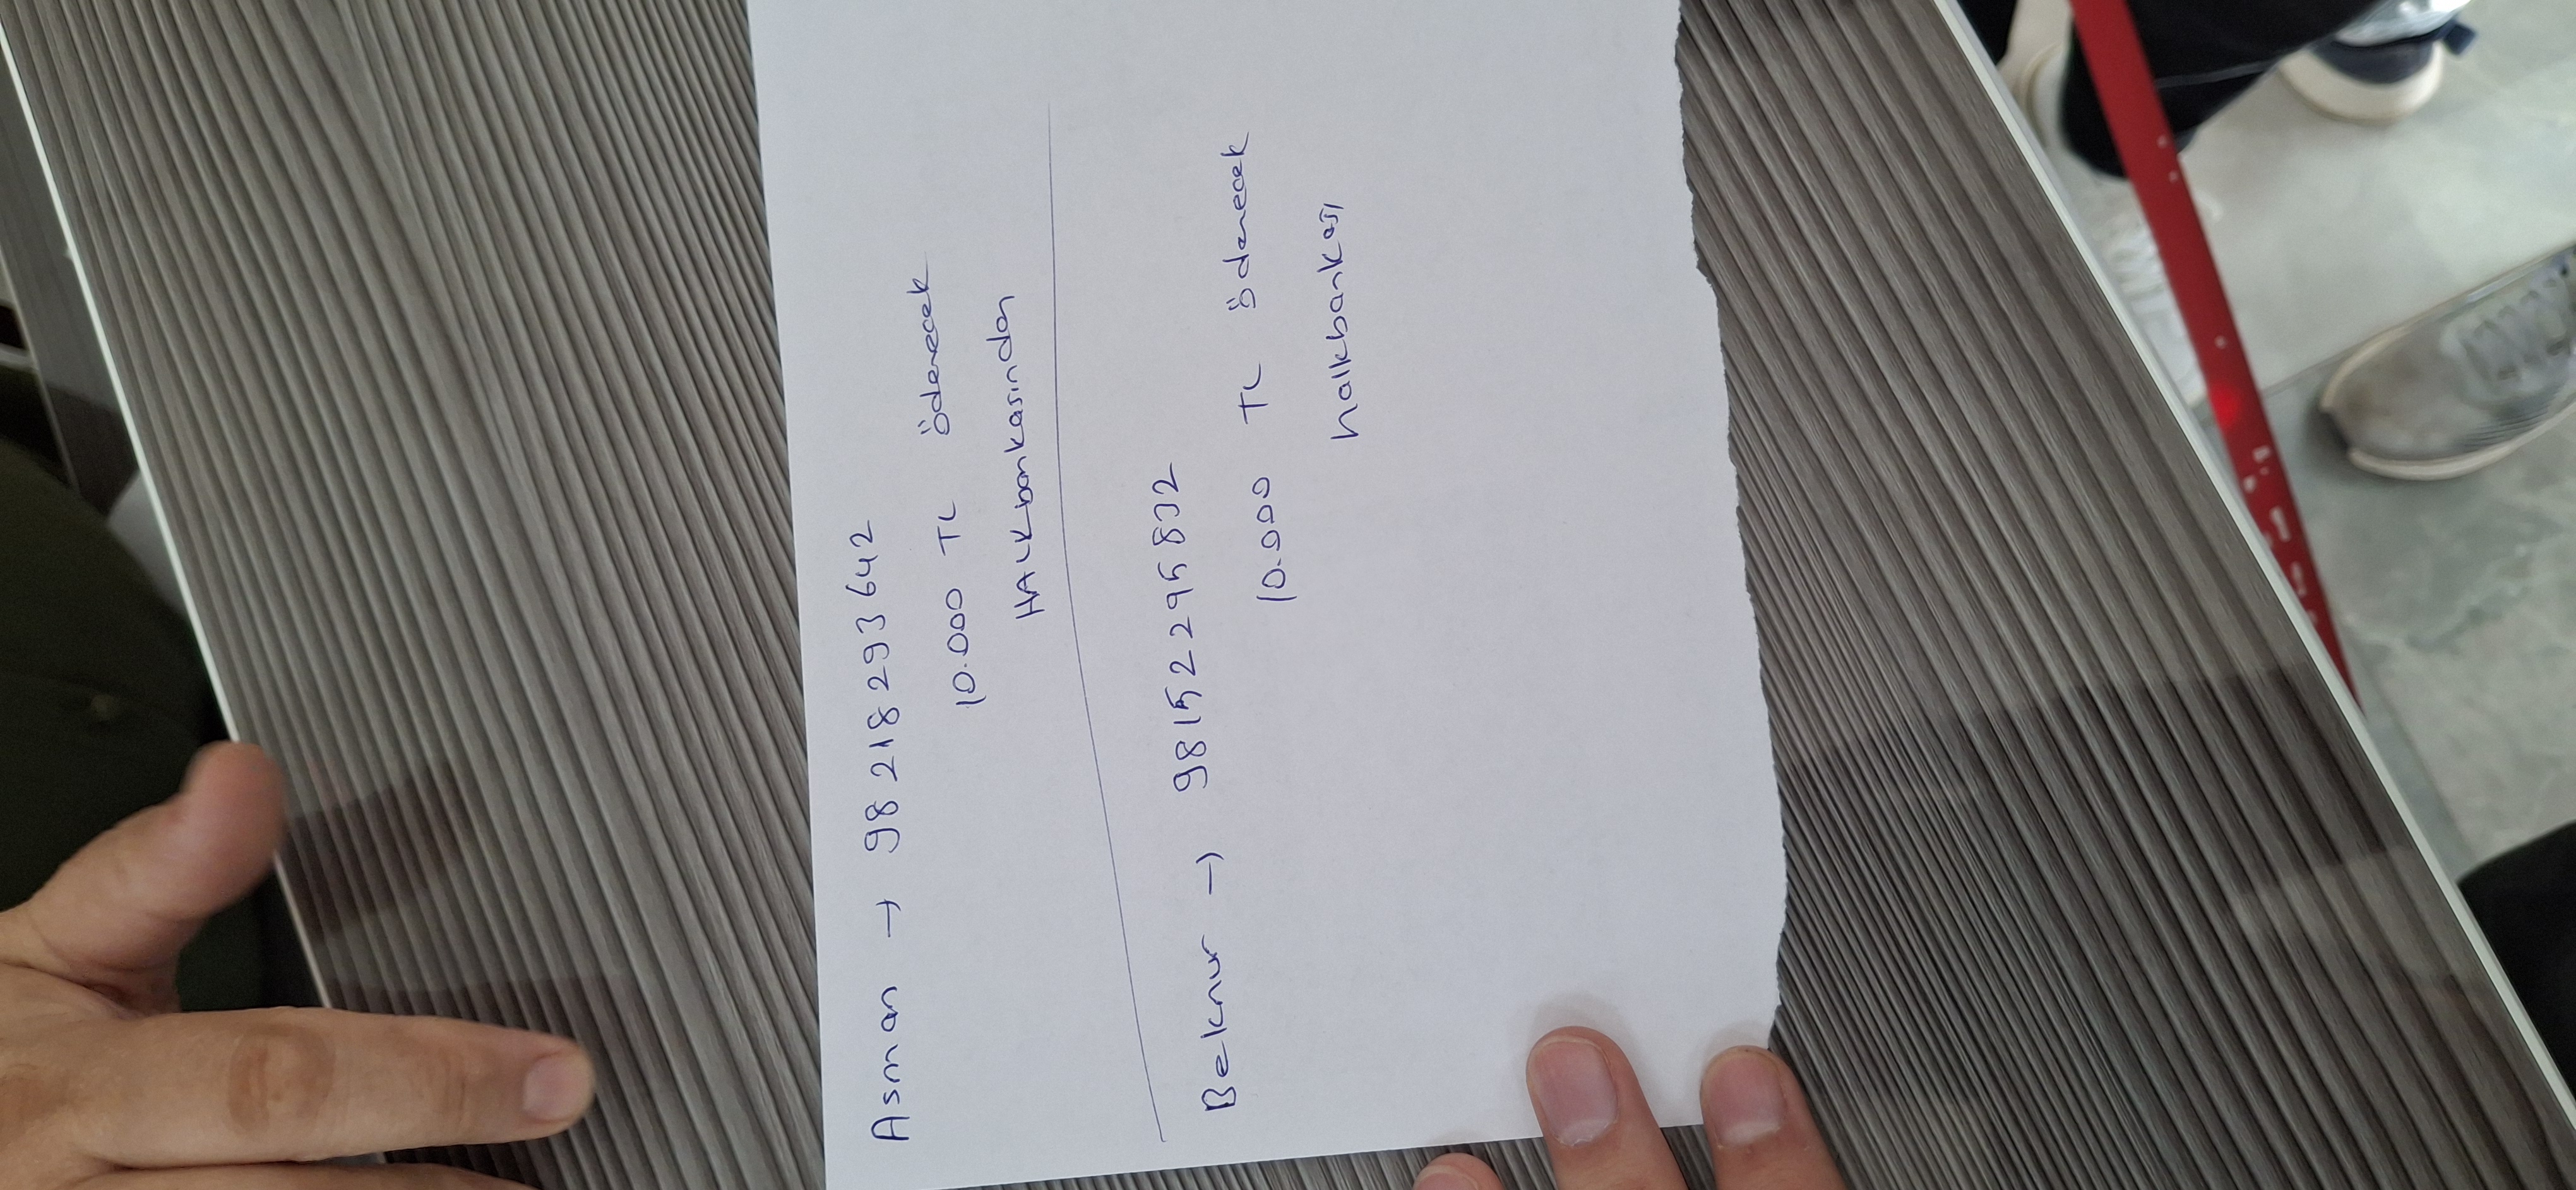 Asman → 98218293642
10.000 TL ödenecek
HALKbankasından
Beknur → 98152295832
10.000 TL ödenecek
halkbankası